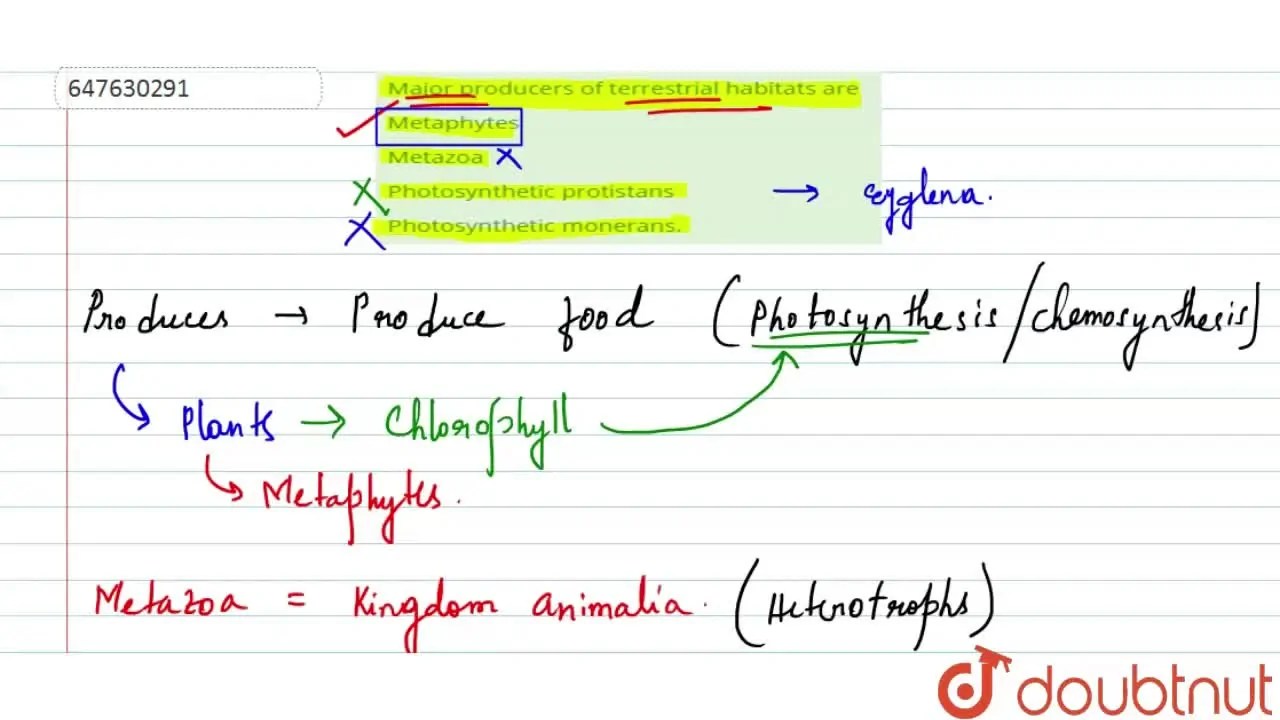 647630291
Major producers of terrestrial habitats are
Metaphytes
Metazoa
Photosynthetic protistans → Eyglena.
Photosynthetic monerans.
Produces → Produce food (Photosynthesis/chemosynthesis)
Plants → Chlorophyll
Metaphytes.
Metazoa = Kingdom animalia. (Heterotrophs)
doubtnut